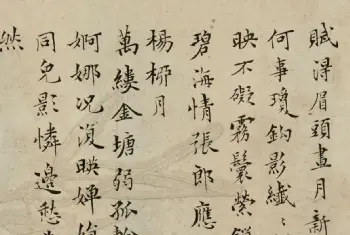 賦得眉頭畫月新
何事瓊鉤影纖〻
映不礙霧鬟縈
碧海情張郎應
楊柳月
萬縷金塘弱孤
婀娜況復映嬋
同兔影憐邊愁
然